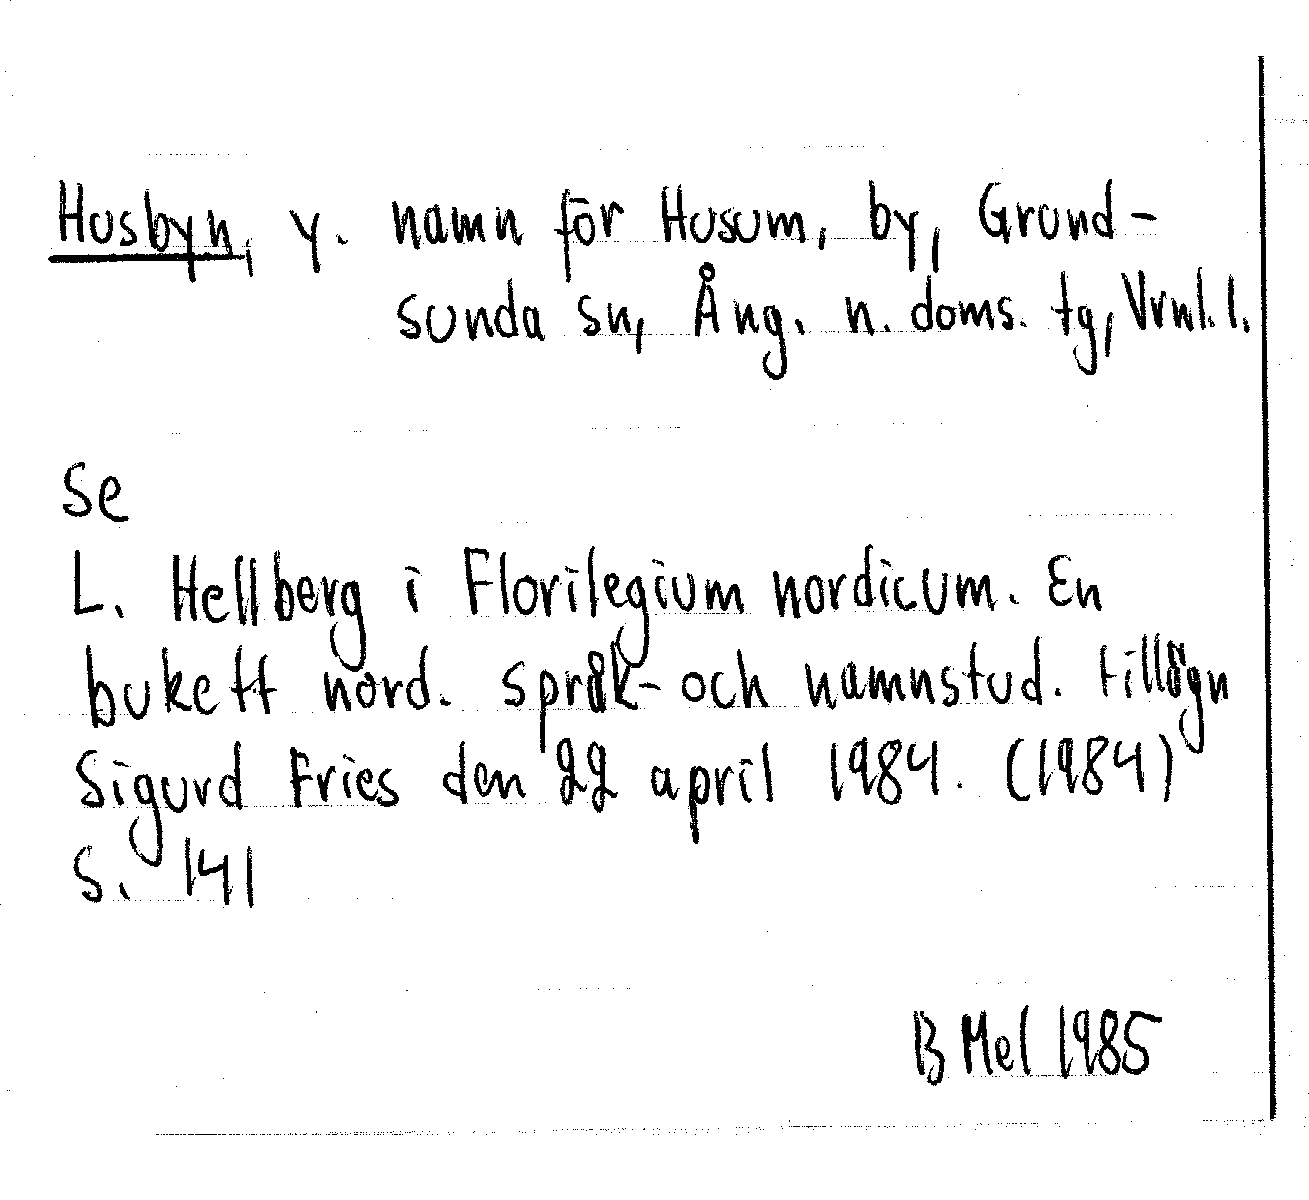 Husbyn, y. namn för Husum, by, Grund-
sunda sn, Ång. n. doms. tg, Vrnl. l.
Se
L. Hellberg i Florilegium nordicum. En
bukett nord. språk- och namnstud. tillägn
Sigurd Fries den 22 april 1984. (1984)
S. 141
B Mel 1985